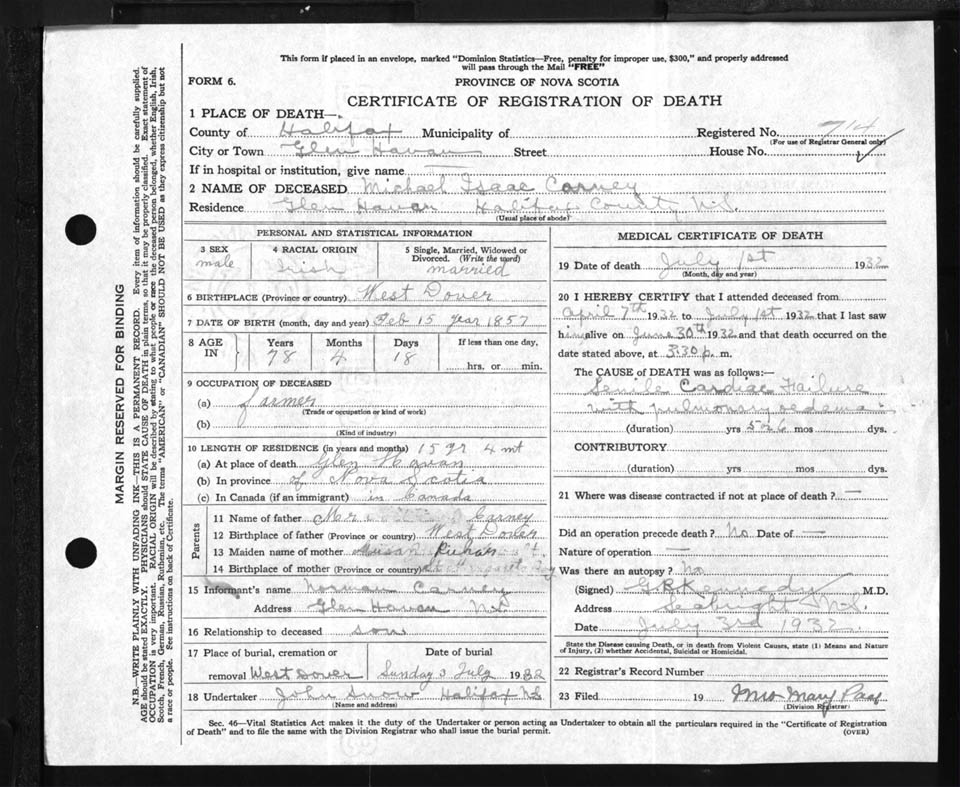 This form if placed in an envelope, marked "Dominion Statistics—Free, penalty for improper use, $300," and properly addressed
will pass through the Mail "FREE"
FORM 6. PROVINCE OF NOVA SCOTIA
CERTIFICATE OF REGISTRATION OF DEATH
1 PLACE OF DEATH—
County of Halifax Municipality of Registered No. 714
(For use of Registrar General only)
City or Town Glen Havan Street House No.
If in hospital or institution, give name —
2 NAME OF DECEASED Michael Isaac Carney
Residence Glen Havan Halifax County N.S.
(Usual place of abode)
PERSONAL AND STATISTICAL INFORMATION
3 SEX 4 RACIAL ORIGIN 5 Single, Married, Widowed or
Divorced. (Write the word)
male Irish married
6 BIRTHPLACE (Province or country) West Dover
7 DATE OF BIRTH (month, day and year) Feb 15 year 1857
8 AGE IN Years Months Days If less than one day,
78 4 18 hrs. or min.
9 OCCUPATION OF DECEASED
(a) farmer
(Trade or occupation or kind of work)
(b)
(Kind of industry)
10 LENGTH OF RESIDENCE (in years and months) 15 yr 4 mt
(a) At place of death Glen Havan
(b) In province of Nova Scotia
(c) In Canada (if an immigrant) in Canada
Parents
11 Name of father Mr Carney
12 Birthplace of father (Province or country) West Dover
13 Maiden name of mother Susan
14 Birthplace of mother (Province or country) Bay
15 Informant's name Norman Carney
Address Glen Havan N.S
16 Relationship to deceased son
17 Place of burial, cremation or Date of burial
removal West Dover Sunday 3 July 1932
18 Undertaker John Snow Halifax N.S
(Name and address)
MEDICAL CERTIFICATE OF DEATH
19 Date of death July 1st 1932
(Month, day and year)
20 I HEREBY CERTIFY that I attended deceased from
April 7th 1932 to July 1st 1932 that I last saw
him alive on June 30th 1932 and that death occurred on
date stated above, at 3:30 p. m.
The CAUSE of DEATH was as follows:—
Senile Cardiac Failure
with pulmonary oedema
(duration) yrs mos dys.
CONTRIBUTORY
(duration) yrs mos dys.
21 Where was disease contracted if not at place of death? —
Did an operation precede death? No. Date of —
Nature of operation —
Was there an autopsy? No
(Signed) G R Kennedy M.D.
Address Seabright N.S.
Date July 3rd 1932.
State the Disease causing Death, or in death from Violent Causes, state (1) Means and Nature
of Injury, (2) whether Accidental, Suicidal or Homicidal.
22 Registrar's Record Number
23 Filed 19 Mrs Mary
(Division Registrar)
Sec. 46—Vital Statistics Act makes it the duty of the Undertaker or person acting as Undertaker to obtain all the particulars required in the "Certificate of Registration
of Death" and to file the same with the Division Registrar who shall issue the burial permit. (OVER)
MARGIN RESERVED FOR BINDING
N.B.—WRITE PLAINLY WITH UNFADING INK—THIS IS A PERMANENT RECORD. Every item of information should be carefully supplied.
AGE should be stated EXACTLY. PHYSICIANS should STATE CAUSE OF DEATH in plain terms, so that it may be properly classified. Exact statement of
OCCUPATION is very important. RACIAL ORIGIN will be described by stating to what people or race the deceased person belonged, whether English, Irish,
Scotch, French, German, Russian, Ruthenian, etc. The terms "AMERICAN" or "CANADIAN" SHOULD NOT BE USED as they express citizenship but not
a race or people. See instructions on back of Certificate.